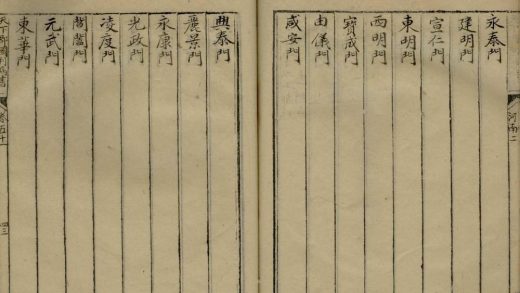 河南二
永泰門
建明門
宣仁門
東明門
西明門
寳成門
由儀門
咸安門
興泰門
麗景門
永康門
光政門
凌度門
閶闔門
元武門
東華門
天下郡國利病書
卷五十